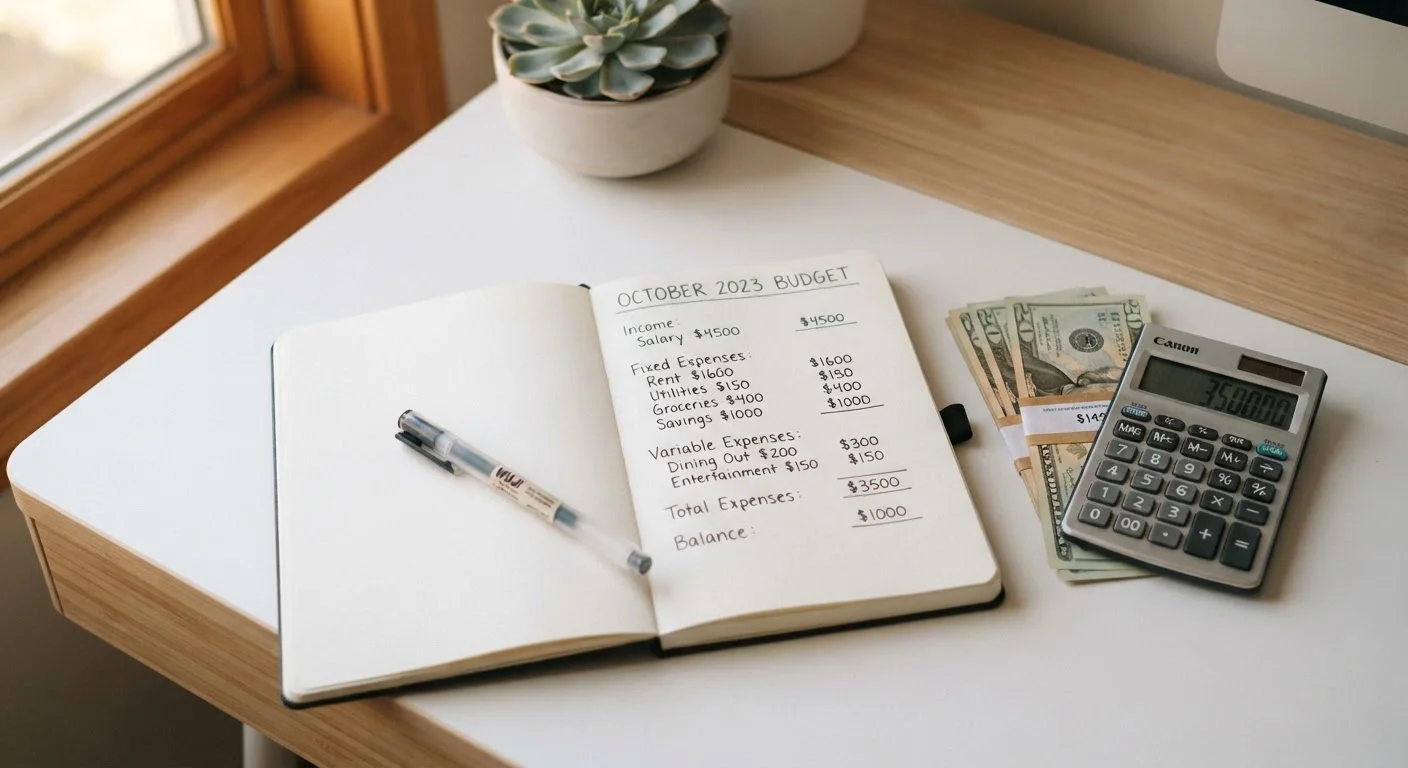 OCTOBER 2023 BUDGET
Income:
Salary $4500 $4500
Fixed Expenses:
Rent $1600 $1600
Utilities $150 $150
Groceries $400 $400
Savings $1000 $1000
Variable Expenses:
Dining Out $200 $300
Entertainment $150 $150
Total Expenses: $3500
Balance: $1000
MUJI
20
20
Canon
350000.00
7 8 9
4 5 6 × −
1 2 3
0 00 . + =